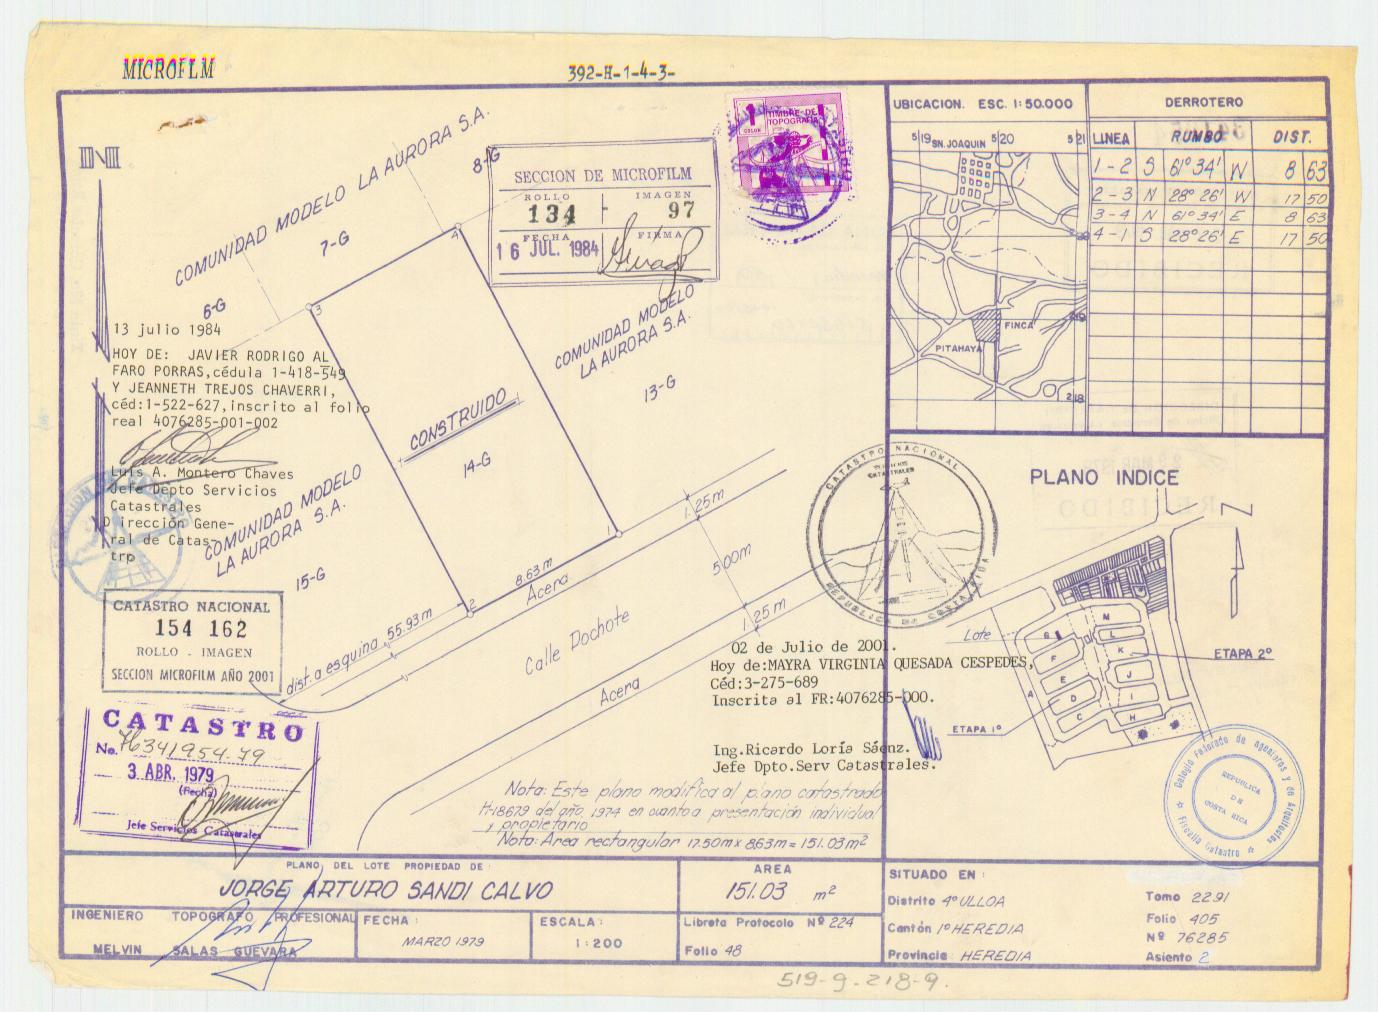 MICROFLM
392-H-1-4-3-
COMUNIDAD MODELO LA AURORA S.A.
8-G
7-G
6-G
SECCION DE MICROFILM
ROLLO IMAGEN
134 - 97
FECHA FIRMA
16 JUL. 1984
1 COLON
TIMBRE DE TOPOGRAFIA
4
3
13 julio 1984
HOY DE: JAVIER RODRIGO AL
FARO PORRAS,cédula 1-418-549
Y JEANNETH TREJOS CHAVERRI,
céd:1-522-627,inscrito al folio
real 4076285-001-002
Luis A. Montero Chaves
Jefe Depto Servicios
Catastrales
Dirección Gene-
ral de Catas-
trp
COMUNIDAD MODELO
LA AURORA S.A.
13-G
CONSTRUIDO
14-G
COMUNIDAD MODELO
LA AURORA S.A.
15-G
1
2
8.63m
Acera
1.25m
5.00m
1.25m
dist. a esquina 55.93m
Calle Pochote
Acera
CATASTRO NACIONAL
154 162
ROLLO - IMAGEN
SECCION MICROFILM AÑO 2001
CATASTRO
No. H341954.79
3 ABR. 1979
(Fecha)
Jefe Servicios Catastrales
CATASTRO NACIONAL
SERVICIOS CATASTRALES
REPUBLICA DE COSTA RICA
02 de Julio de 2001.
Hoy de:MAYRA VIRGINIA QUESADA CESPEDES,
Céd:3-275-689
Inscrita al FR:4076285-000.
Ing.Ricardo Loría Sáenz.
Jefe Dpto.Serv Catastrales.
Nota: Este plano modifica al plano catastrado
H-18679 del año 1974 en cuanto a presentación individual
y propietario
Nota: Area rectangular 17.50m x 8.63m = 151.03m²
UBICACION. ESC. 1:50.000
519 SN. JOAQUIN 520 521
219
FINCA
PITAHAYA
218
DERROTERO
LINEA RUMBO DIST.
1-2 S 61°34' W 8 63
2-3 N 28°26' W 17 50
3-4 N 61°34' E 8 63
4-1 S 28°26' E 17 50
PLANO INDICE
Lote
M
L
G
K
F
E
J
D
I
C
H
A
ETAPA 2°
ETAPA 1°
Colegio Federado de Ingenieros y de Arquitectos
Fiscalía Catastro
REPUBLICA DE COSTA RICA
PLANO DEL LOTE PROPIEDAD DE:
JORGE ARTURO SANDI CALVO
AREA
151.03 m²
INGENIERO TOPOGRAFO PROFESIONAL
MELVIN SALAS GUEVARA
FECHA:
MARZO 1979
ESCALA:
1:200
Libreta Protocolo Nº 224
Folio 48
SITUADO EN:
Distrito 4º ULLOA
Cantón 1º HEREDIA
Provincia: HEREDIA
Tomo 2291
Folio 405
Nº 76285
Asiento 2
519-9-218-9.